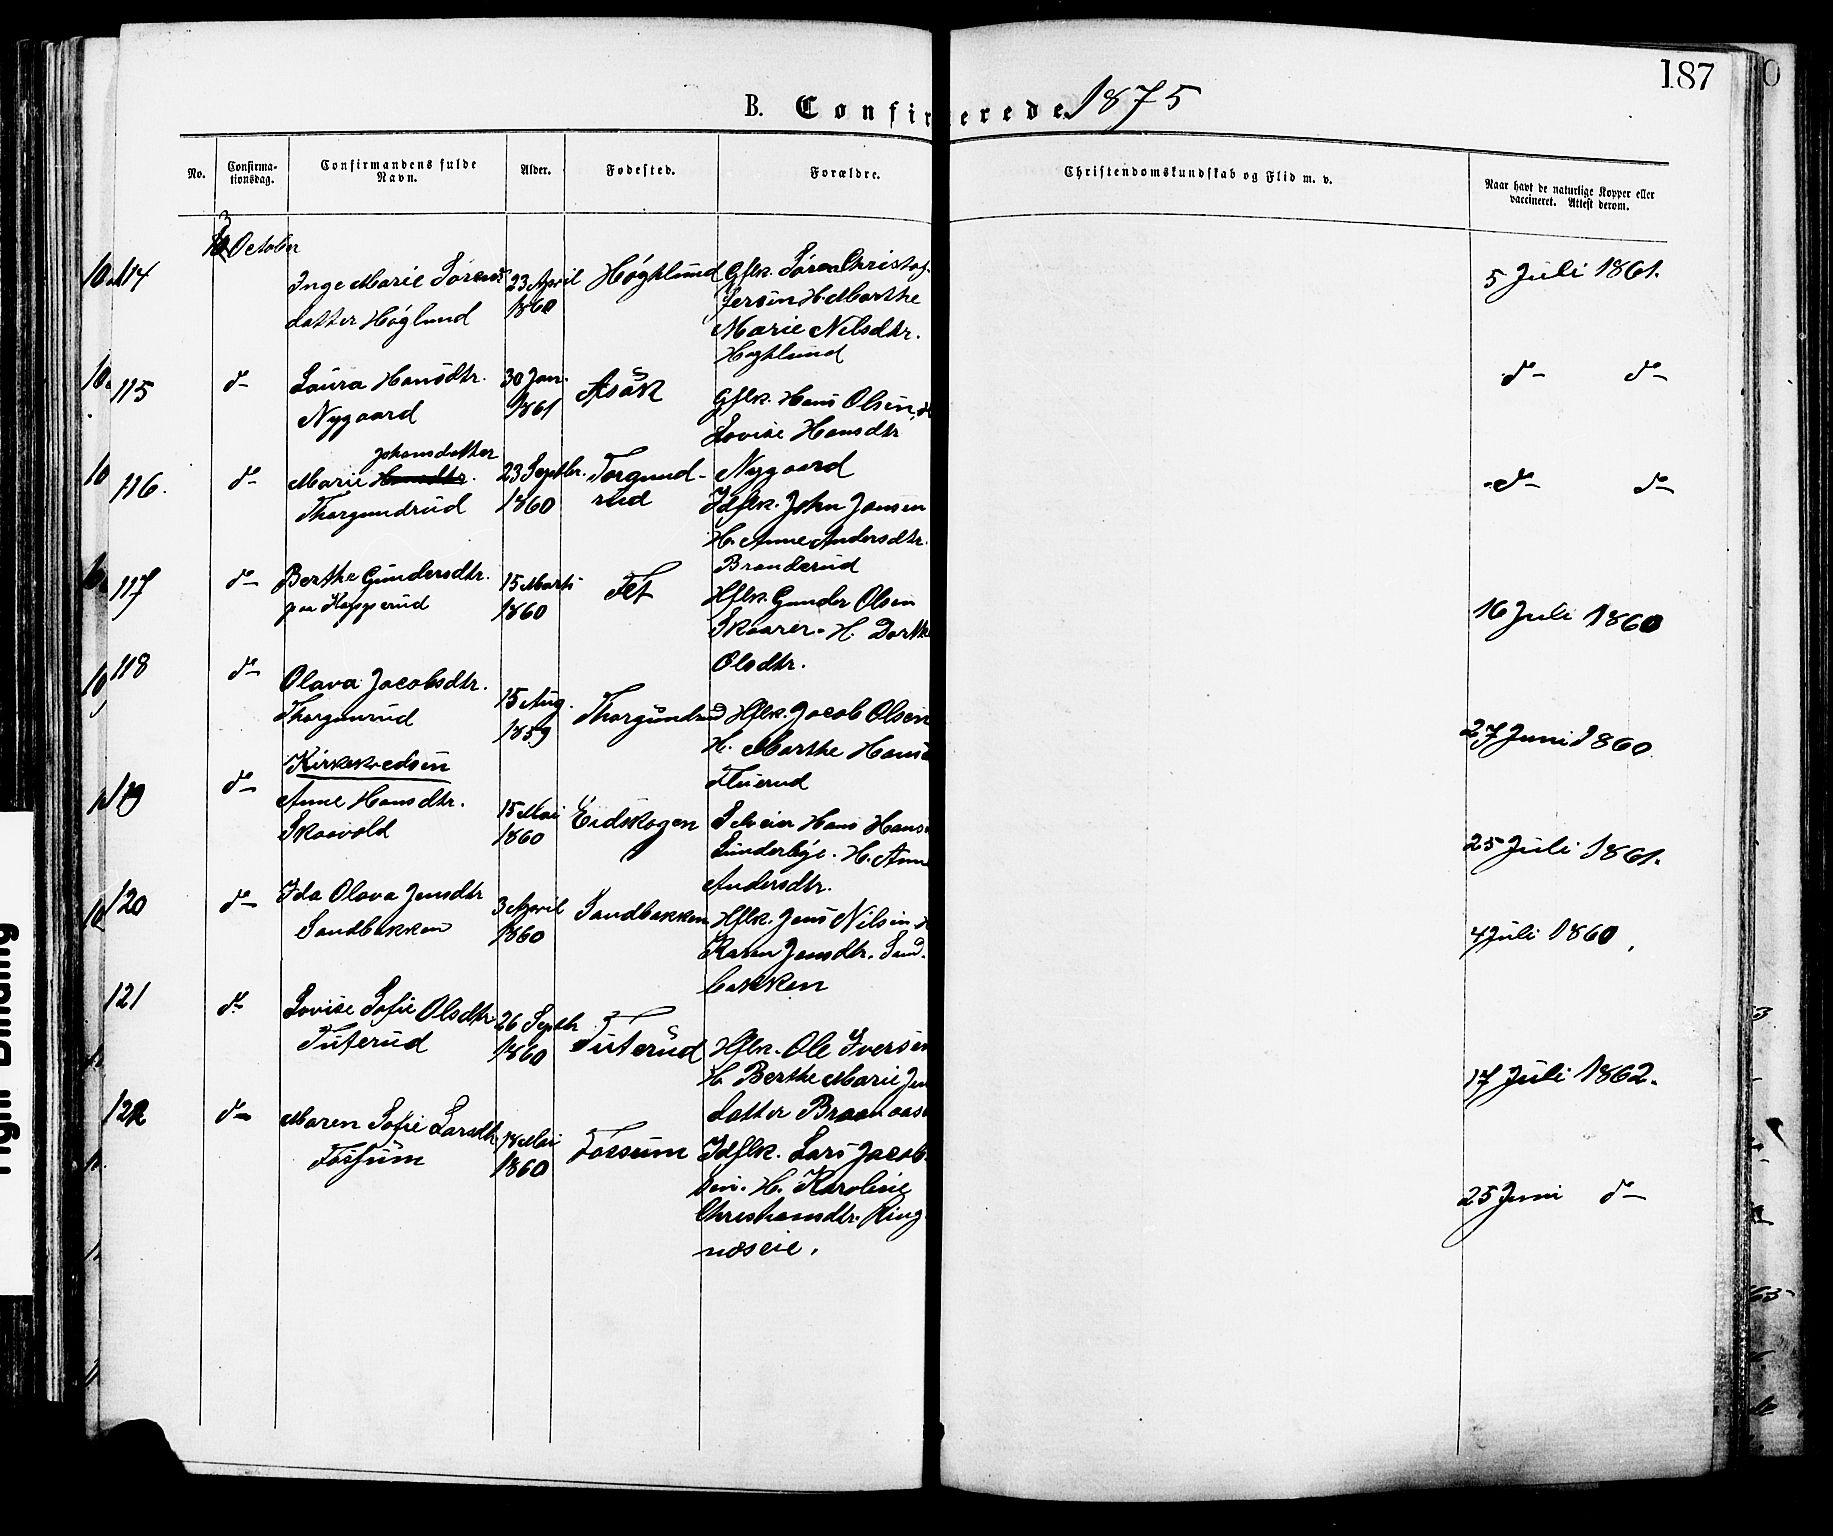 187
B. Confirmerede 1875
No.
Confirma-
tionsdag.
Confirmandens fulde
Navn.
Alder.
Fødested.
Forældre.
Christendomskundskab og Flid m. v.
Naar havt de naturlige Kopper eller
vaccineret. Attest derom.
3 October
114
Inge Marie Sørens
datter Høglund
23 April
1860
Høghlund
Gflk. Søren Christof-
fersen H. Marthe
Marie Nilsdtr.
Høghlund
5 Juli 1861.
115
d-
Laura Hansdtr.
Nygaard
30 Jan.
1861
Asak
Gflk. Hans Olsen, H
Lovise Hansdtr
Nygaard
d- d-
116.
d-
Johansdatter
Marie Hansdtr.
Thorgundrud
23 Septbr.
1860
Torgund-
rud
Idflk. John Jansen
H. Anne Andersdtr.
Branderud
d- d-
117
d-
Berthe Gundersdtr.
paa Kopperud
15 Marts
1860
Fet
Hflk. Gunder Olsen
Skaarer. H. Dorthe
Olsdtr.
16 Juli 1860
118
d-
Olava Jacobsdtr.
Thorgunrud
15 Aug.
1859
Thorgundrud
Hflk. Jacob Olsen
H. Marthe Hansd
Fluerud
27 Juni 1860.
119
d-
Kirkekredsen
Anne Hansdtr.
Skaavold
15 Mai
1860
Eidskogen
Selveier Hans Hans
Sunderbye. H. Anne
Andersdtr.
25 Juli 1861.
120
d-
Ida Olava Jensdtr
Sandbakken
3 April
1860
Sandbakken
Hflk. Jens Nilsen. H
Karen Jensdtr. Sand-
bakken
4 Juli 1860
121
d-
Lovise Sofie Olsdtr
Tuterud
26 Septbr
1860
Tuterud
Hflk. Ole Iversen
H. Berthe Marie Jen
datter Braanaas
17 Juli 1862.
122
d-
Maren Sofie Larsdtr
Fossum
18 Mai
1860
Fossum
Idflk. Lars Jacob-
sen. H. Karoline
Christiansdtr. Ring-
næseie.
25 Juni d-